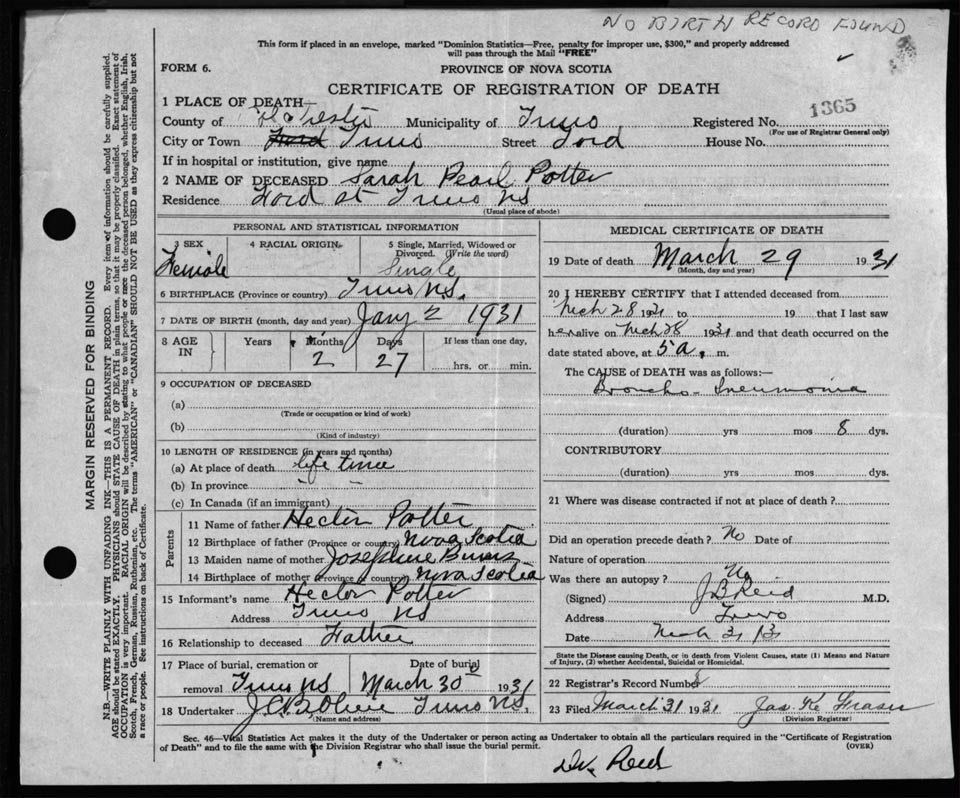 NO BIRTH RECORD FOUND
This form if placed in an envelope, marked "Dominion Statistics—Free, penalty for improper use, $300," and properly addressed
will pass through the Mail "FREE"
FORM 6.
PROVINCE OF NOVA SCOTIA
CERTIFICATE OF REGISTRATION OF DEATH
1365
1 PLACE OF DEATH—
County of Colchester Municipality of Truro Registered No.
(For use of Registrar General only)
City or Town Ford Truro Street Ford House No.
If in hospital or institution, give name
2 NAME OF DECEASED Sarah Pearl Potter
Residence Ford st Truro NS
(Usual place of abode)
PERSONAL AND STATISTICAL INFORMATION
3 SEX 4 RACIAL ORIGIN 5 Single, Married, Widowed or
Divorced. (Write the word)
Female Single
6 BIRTHPLACE (Province or country) Truro N.S.
7 DATE OF BIRTH (month, day and year) Jany 2 1931
8 AGE IN Years Months Days If less than one day,
2 27 hrs. or min.
9 OCCUPATION OF DECEASED
(a)
(Trade or occupation or kind of work)
(b)
(Kind of industry)
10 LENGTH OF RESIDENCE (in years and months)
(a) At place of death life time
(b) In province " "
(c) In Canada (if an immigrant)
Parents
11 Name of father Hector Potter
12 Birthplace of father (Province or country) Nova Scotia
13 Maiden name of mother Josephine
14 Birthplace of mother (Province or country) Nova Scotia
15 Informant's name Hector Potter
Address Truro NS
16 Relationship to deceased Father
17 Place of burial, cremation or Date of burial
removal Truro NS March 30 1931
18 Undertaker Truro NS.
(Name and address)
MEDICAL CERTIFICATE OF DEATH
19 Date of death March 29 1931
(Month, day and year)
20 I HEREBY CERTIFY that I attended deceased from
Mch 28 1931 to 19 that I last saw
her alive on Mch 28 1931 and that death occurred on
date stated above, at 5 a. m.
The CAUSE of DEATH was as follows:—
Broncho-Pneumonia
(duration) yrs mos 8 dys.
CONTRIBUTORY
(duration) yrs mos dys.
21 Where was disease contracted if not at place of death?
Did an operation precede death? No Date of
Nature of operation
Was there an autopsy? No
(Signed) J B Reid M.D.
Address Truro
Date Mch 31 31
State the Disease causing Death, or in death from Violent Causes, state (1) Means and Nature
of Injury, (2) whether Accidental, Suicidal or Homicidal.
22 Registrar's Record Number
23 Filed March 31 1931 Jas. K Fraser
(Division Registrar)
Sec. 46—Vital Statistics Act makes it the duty of the Undertaker or person acting as Undertaker to obtain all the particulars required in the "Certificate of Registration
of Death" and to file the same with the Division Registrar who shall issue the burial permit.
(OVER)
Dr. Reid
MARGIN RESERVED FOR BINDING
N.B.—WRITE PLAINLY WITH UNFADING INK—THIS IS A PERMANENT RECORD. Every item of information should be carefully supplied.
AGE should be stated EXACTLY. PHYSICIANS should STATE CAUSE OF DEATH in plain terms, so that it may be properly classified. Exact statement of
OCCUPATION is very important. RACIAL ORIGIN will be described by stating to what people or race the deceased person belonged, whether English, Irish,
Scotch, French, German, Russian, Ruthenian, etc. The terms "AMERICAN" or "CANADIAN" SHOULD NOT BE USED as they express citizenship but not
a race or people. See instructions on back of Certificate.